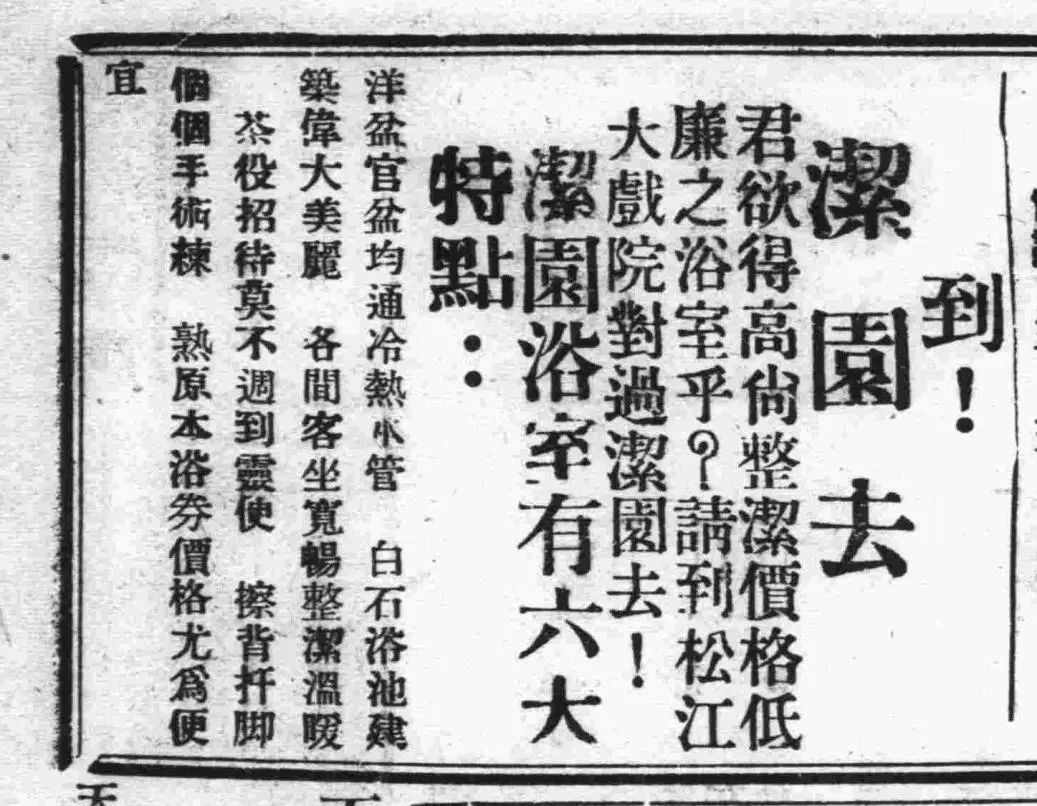 到！
潔園去
君欲得高尙整潔價格低
廉之浴室乎？請到松江
大戲院對過潔園去！
潔園浴室有六大
特點：
洋盆官盆均通冷熱水管　白石浴池建
築偉大美麗　各間客坐寬暢整潔溫暖
茶役招待莫不週到靈使　擦背扞脚
個個手術棟　熟原本浴券價格尤爲便
宜
天